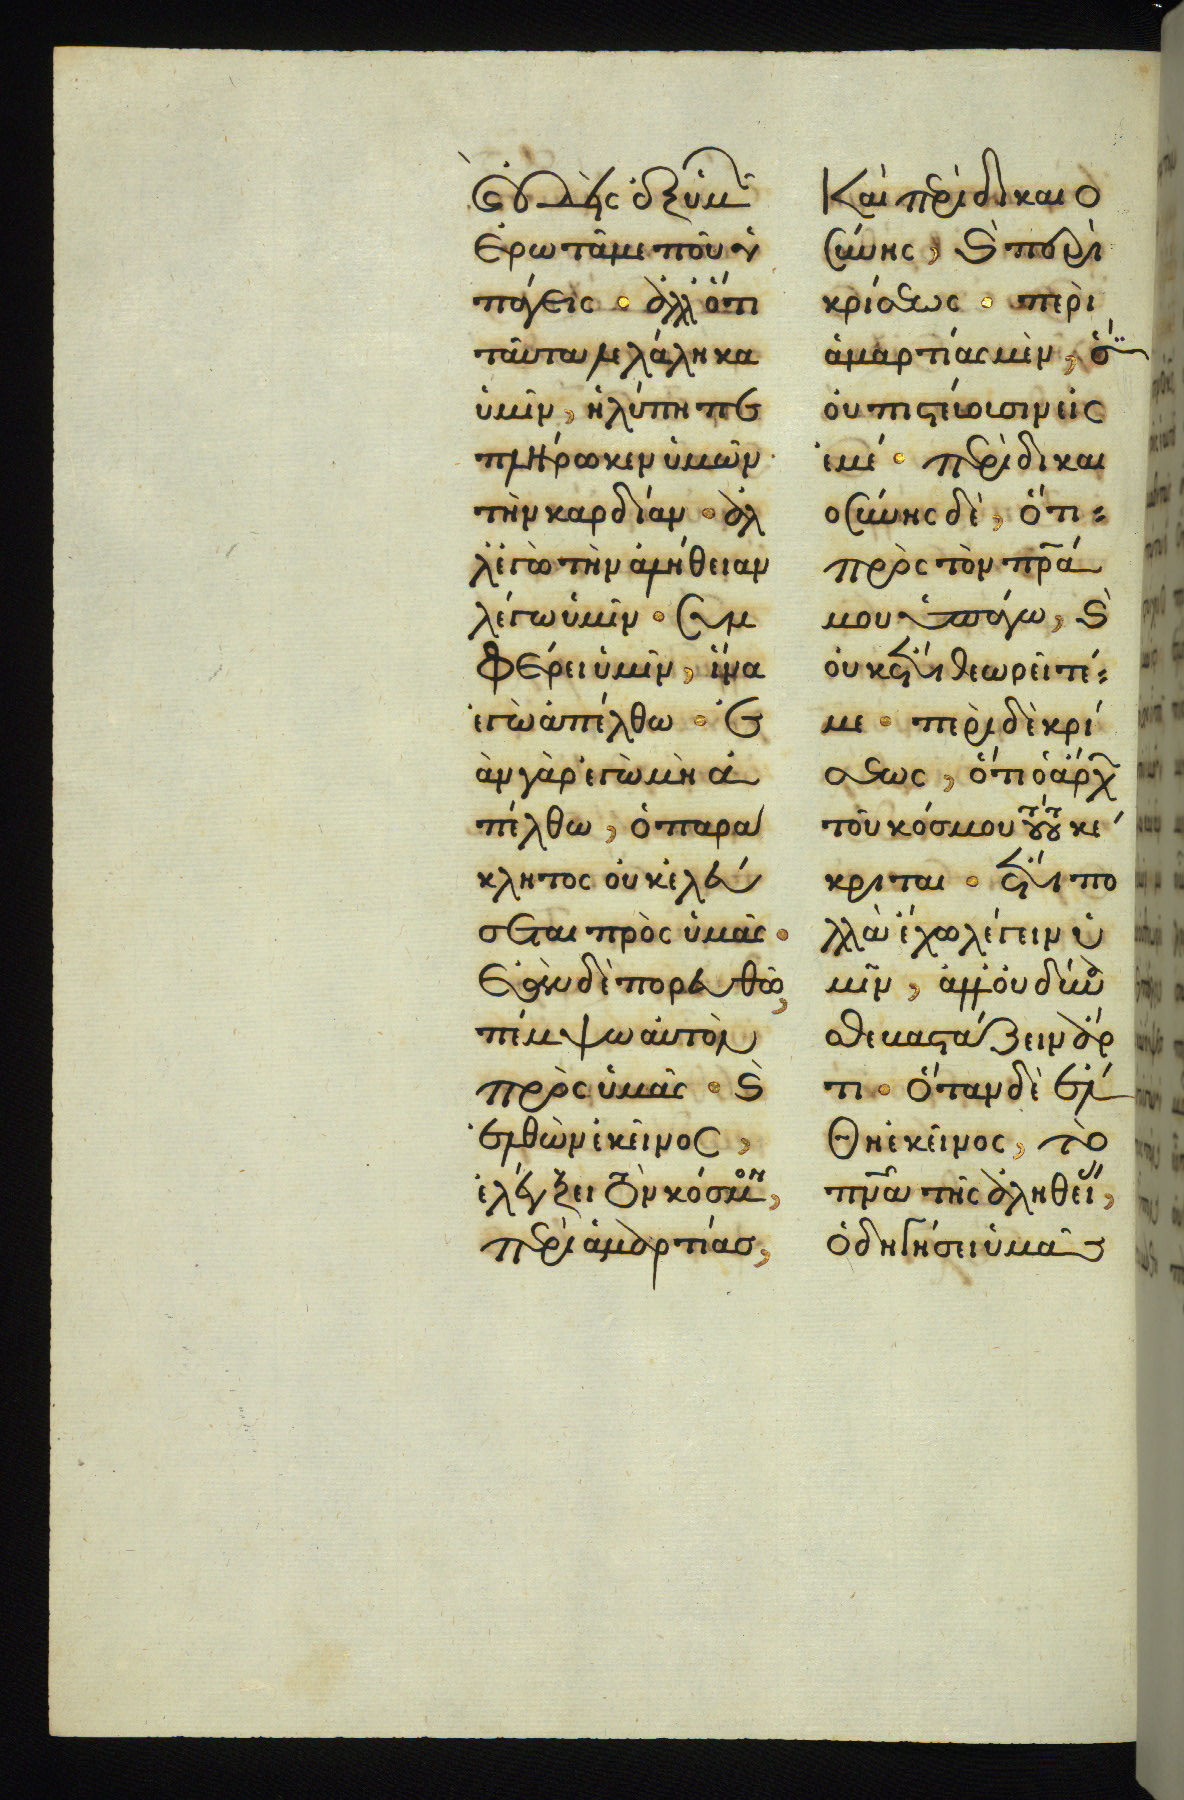 ὀυδεὶς ἐξ ὑμῶν
ἐρωτᾶ με ποῦ ὑ
πάγεις · ἀλλ ὅτι
ταῦτα λελάληκα
ὑμῖν, ἡ λύπη πε
πλήρωκεν ὑμῶν
τὴν καρδίαν · ἀλ
λ ἐγὼ τὴν ἀλήθειαν
λέγω ὑμῖν · συμ
φέρει ὑμῖν, ἵνα
ἐγὼ ἀπέλθω · ἐ
ὰν γὰρ ἐγὼ μὴ ἀ
πέλθω, ὁ παρά
κλητος οὐκ ἐλεύ
σεται πρὸς ὑμᾶς ·
ἐὰν δὲ πορευθῶ,
πέμψω ἀυτὸν
πρὸς ὑμᾶς · ϗ
ἐλθὼν ἐκεῖνος,
ἐλέγξει τὸν κόσμον,
περὶ ἁμαρτίασ,
Καὶ περὶ δικαιο
σύνης, ϗ περὶ
κρίσεως · περὶ
ἁμαρτίας μὲν, ὅτι
ὀυ πιστεύουσιν εἰς
ἐμέ · περὶ δικαι
οσύνης δὲ, ὅτι
πρὸς τὸν πρ̅α
μου ὑπάγω, ϗ
ὀυκ ἔτι θεωρεῖτέ
με · περὶ δὲ κρί
σεως, ὅτι ὁ ἄρχων
τοῦ κόσμου τούτου κέ
κριται · ἔτι πο
λλὰ ἔχω λέγειν ὑ
μῖν, ἀλλ ὀυ δύνα
σθε βαστάζειν ἄρ
τι · ὅταν δὲ ἔλ
θη ἐκεῖνος, τὸ
πν̅α τῆς ἀληθείας,
ὁδηγήσει ὑμᾶς